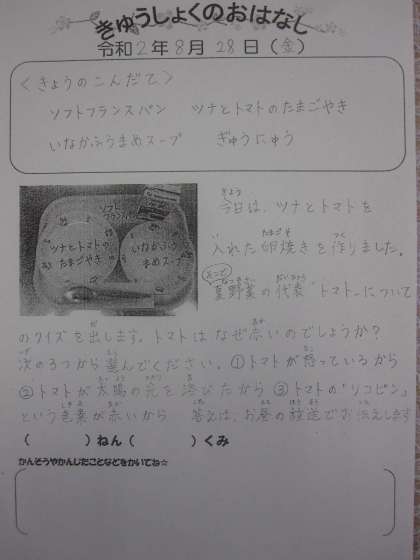 きゅうしょくのおはなし
令和2年8月28日(金)
<きょうのこんだて>
ソフトフランスパン ツナとトマトのたまごやき
いなかふうまめスープ ぎゅうにゅう
ソフト
フランスパン
ツナとトマトの
たまごやき
いなかふう
まめスープ
今日は、ツナとトマトを
入れた卵焼きを作りました。
そこで
夏野菜の代表"トマト"について
のクイズを出します。トマトはなぜ赤いのでしょうか?
次の3つから選んでください。①トマトが怒っているから
②トマトが太陽の光を浴びたから ③トマトの"リコピン"
という色素が赤いから 答えは、お昼の放送でお伝えします
( )ねん( )くみ
かんそうやかんしたことなどをかいてね☆